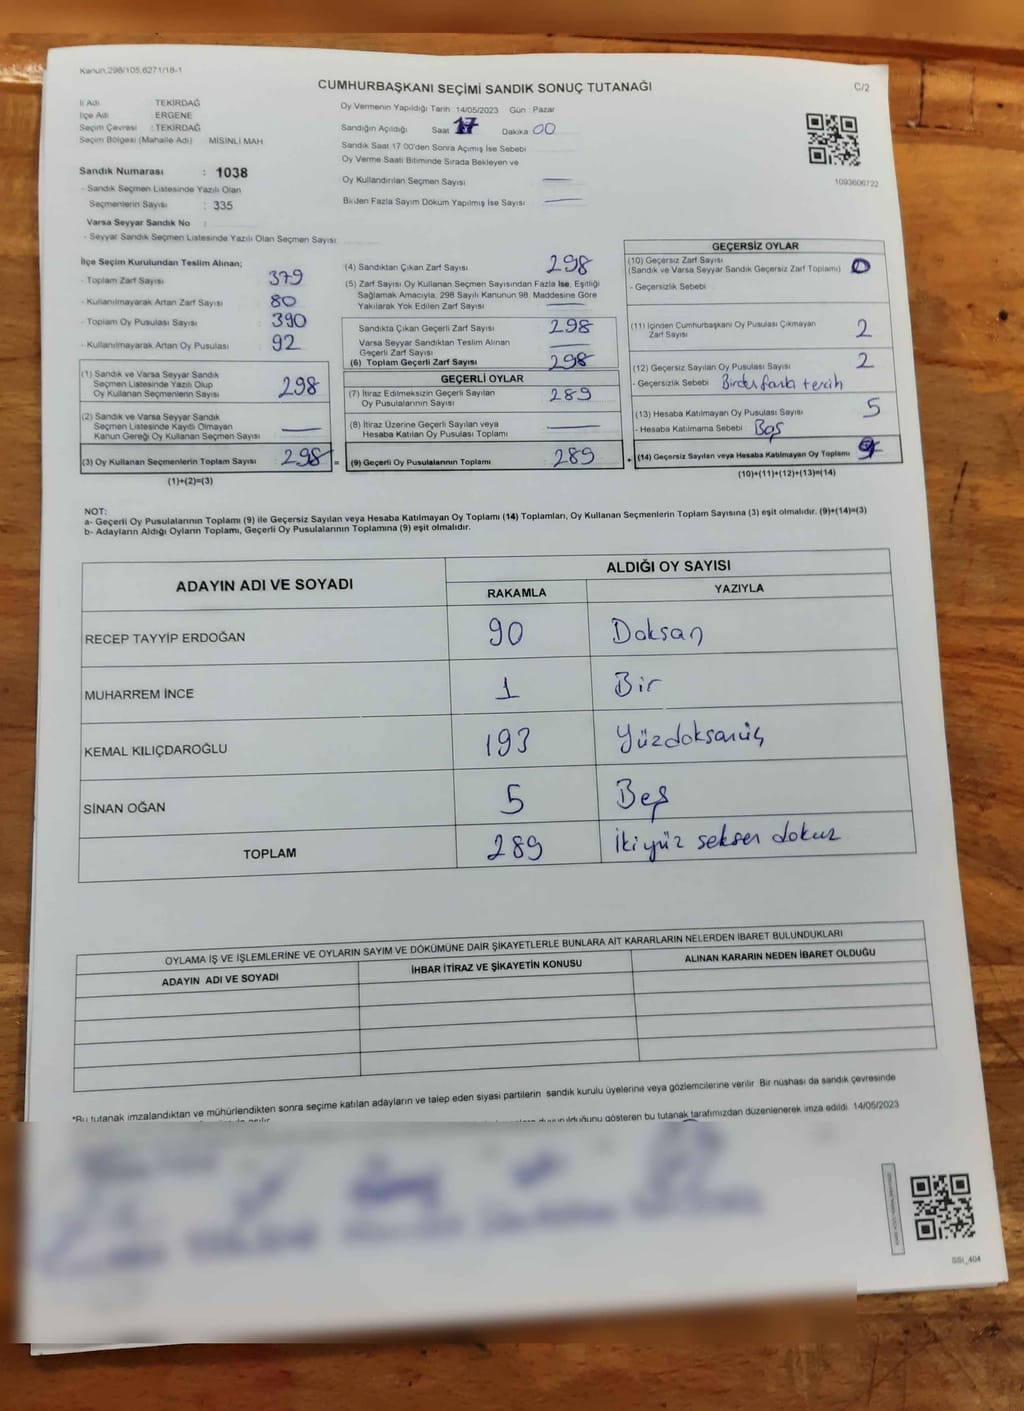 Kanun.298/105,6271/18-1
CUMHURBAŞKANI SEÇİMİ SANDIK SONUÇ TUTANAĞI
C/2
İl Adı TEKİRDAĞ
İlçe Adı ERGENE
Seçim Çevresi : TEKİRDAĞ
Seçim Bölgesi (Mahalle Adı) MISINLI MAH
Oy Vermenin Yapıldığı Tarih : 14/05/2023 Gün : Pazar
Sandığın Açıldığı Saat 17 Dakika 00
Sandık Saat 17:00'den Sonra Açılmış İse Sebebi
Oy Verme Saati Bitiminde Sırada Bekleyen ve
Oy Kullandırılan Seçmen Sayısi —
Birden Fazla Sayım Döküm Yapılmış İse Sayısı —
1093606722
Sandık Numarası : 1038
- Sandık Seçmen Listesinde Yazılı Olan
Seçmenlerin Sayısı : 335
Varsa Seyyar Sandık No :
- Seyyar Sandık Seçmen Listesinde Yazılı Olan Seçmen Sayısı:
İlçe Seçim Kurulundan Teslim Alınan;
- Toplam Zarf Sayısı : 379
- Kullanılmayarak Artan Zarf Sayısı : 80
- Toplam Oy Pusulası Sayısı : 390
- Kullanılmayarak Artan Oy Pusulası : 92
(1) Sandık ve Varsa Seyyar Sandık
Seçmen Listesinde Yazılı Olup
Oy Kullanan Seçmenlerin Sayısı 298
(2) Sandık ve Varsa Seyyar Sandık
Seçmen Listesinde Kayıtlı Olmayan
Kanun Gereği Oy Kullanan Seçmen Sayısı —
(3) Oy Kullanan Seçmenlerin Toplam Sayısı 298 =
(1)+(2)=(3)
(4) Sandıktan Çıkan Zarf Sayısı 298
(5) Zarf Sayısı Oy Kullanan Seçmen Sayısından Fazla İse, Eşitliği
Sağlamak Amacıyla, 298 Sayılı Kanunun 98. Maddesine Göre
Yakılarak Yok Edilen Zarf Sayısı —
Sandıkta Çıkan Geçerli Zarf Sayısı 298
Varsa Seyyar Sandıktan Teslim Alınan
Geçerli Zarf Sayısı —
(6) Toplam Geçerli Zarf Sayısı 298
GEÇERLİ OYLAR
(7) İtiraz Edilmeksizin Geçerli Sayılan
Oy Pusulalarının Sayısı 289
(8) İtiraz Üzerine Geçerli Sayılan veya
Hesaba Katılan Oy Pusulası Toplamı —
(9) Geçerli Oy Pusulalarının Toplamı 289 +
GEÇERSİZ OYLAR
(10) Geçersiz Zarf Sayısı
(Sandık ve Varsa Seyyar Sandık Geçersiz Zarf Toplamı) 0
- Geçersizlik Sebebi :
(11) İçinden Cumhurbaşkanı Oy Pusulası Çıkmayan
Zarf Sayısı 2
(12) Geçersiz Sayılan Oy Pusulası Sayısı 2
- Geçersizlik Sebebi : Birden fazla tercih
(13) Hesaba Katılmayan Oy Pusulası Sayısı 5
- Hesaba Katılmama Sebebi : Boş
(14) Geçersiz Sayılan veya Hesaba Katılmayan Oy Toplamı 9
(10)+(11)+(12)+(13)=(14)
NOT:
a- Geçerli Oy Pusulalarının Toplamı (9) ile Geçersiz Sayılan veya Hesaba Katılmayan Oy Toplamı (14) Toplamları, Oy Kullanan Seçmenlerin Toplam Sayısına (3) eşit olmalıdır. (9)+(14)=(3)
b- Adayların Aldığı Oyların Toplamı, Geçerli Oy Pusulalarının Toplamına (9) eşit olmalıdır.
ADAYIN ADI VE SOYADI ALDIĞI OY SAYISI
RAKAMLA YAZIYLA
RECEP TAYYİP ERDOĞAN 90 Doksan
MUHARREM İNCE 1 Bir
KEMAL KILIÇDAROĞLU 193 Yüzdoksanüç
SİNAN OĞAN 5 Beş
TOPLAM 289 İkiyüz seksen dokuz
OYLAMA İŞ VE İŞLEMLERİNE VE OYLARIN SAYIM VE DÖKÜMÜNE DAİR ŞİKAYETLERLE BUNLARA AİT KARARLARIN NELERDEN İBARET BULUNDUKLARI
ADAYIN ADI VE SOYADI İHBAR İTİRAZ VE ŞİKAYETİN KONUSU ALINAN KARARIN NEDEN İBARET OLDUĞU
*Bu tutanak imzalandıktan ve mühürlendikten sonra seçime katılan adayların ve talep eden siyasi partilerin sandık kurulu üyelerine veya gözlemcilerine verilir. Bir nüshası da sandık çevresinde
duyurulduğunu gösteren bu tutanak tarafımızdan düzenlenerek imza edildi. 14/05/2023
SSI_404